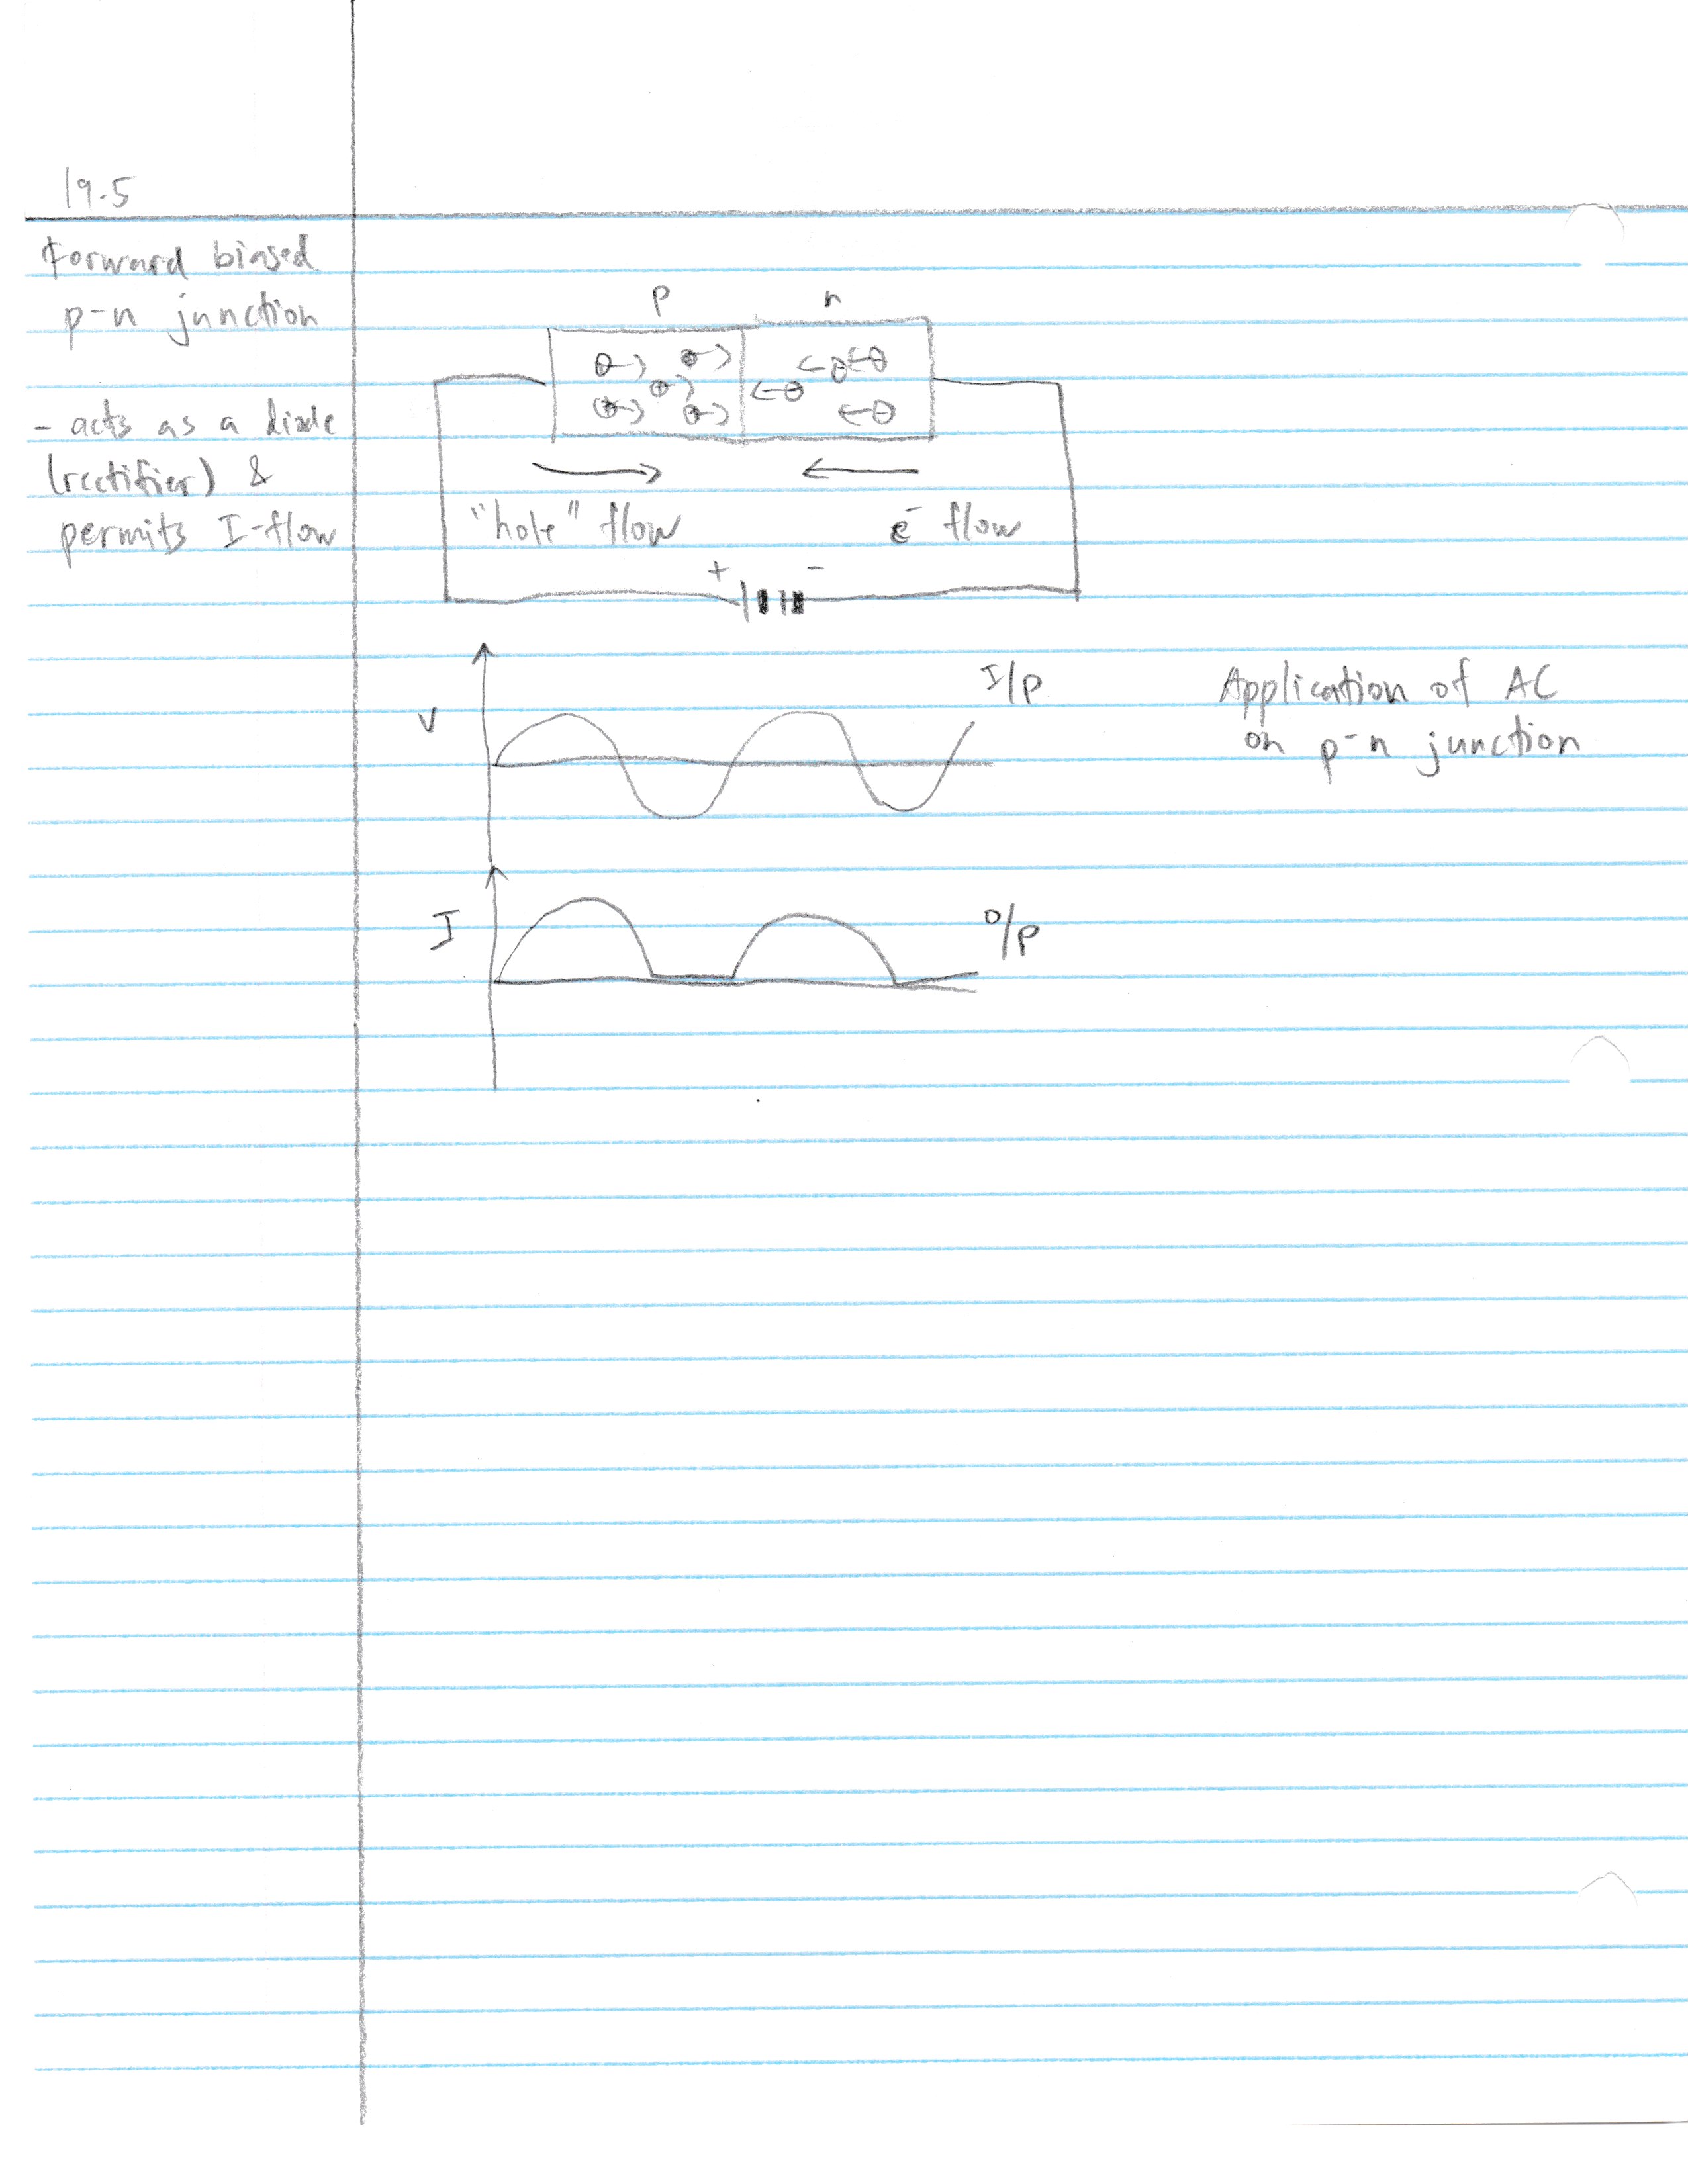 19.5
Forward biased
p-n junction
- acts as a diode
(rectifier) &
permits I-flow
p n
"hole" flow e⁻ flow
+ -
V
I/p
Application of AC
on p-n junction
I
O/p